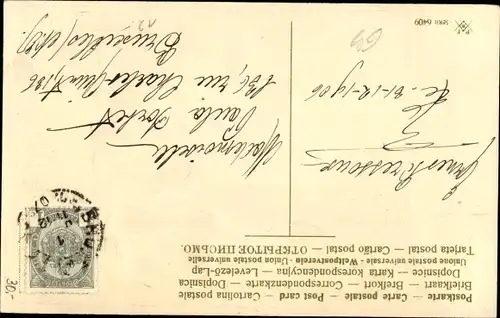 Postkarte — Carte postale — Post card — Cartolina postale
Briefkaart — Brefkort — Correspondenzkarte — Dopisnica
Dopisnice — Karta korespondencyjna — Levelező-Lap
Unione postale universale - Weltpostverein - Union postale universelle
Tarjeta postal — Cartão postal — ОТКРЫТОЕ ПИСЬМО.
le 31-12-1906
Mademoiselle
Paula
131, rue Charles Quint, 136
Bruxelles
SERIE 6409
30.-